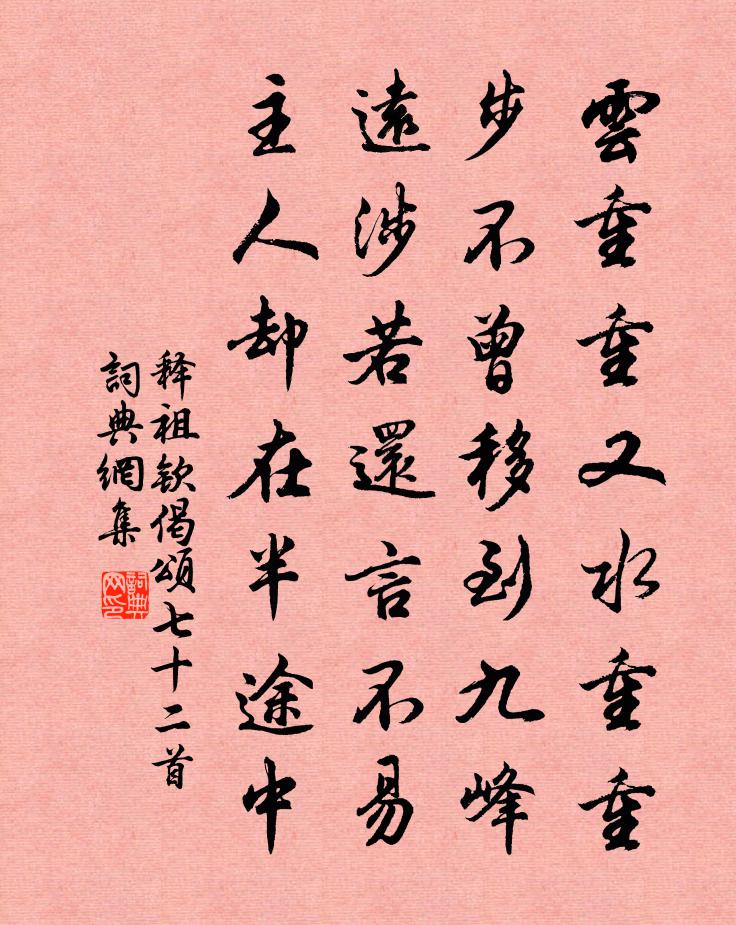 雲重重又水重重
步不曾移到九峰
遠涉若還言不易
主人却在半途中
释祖欽偈頌七十二首
詞典網集
詞典网印